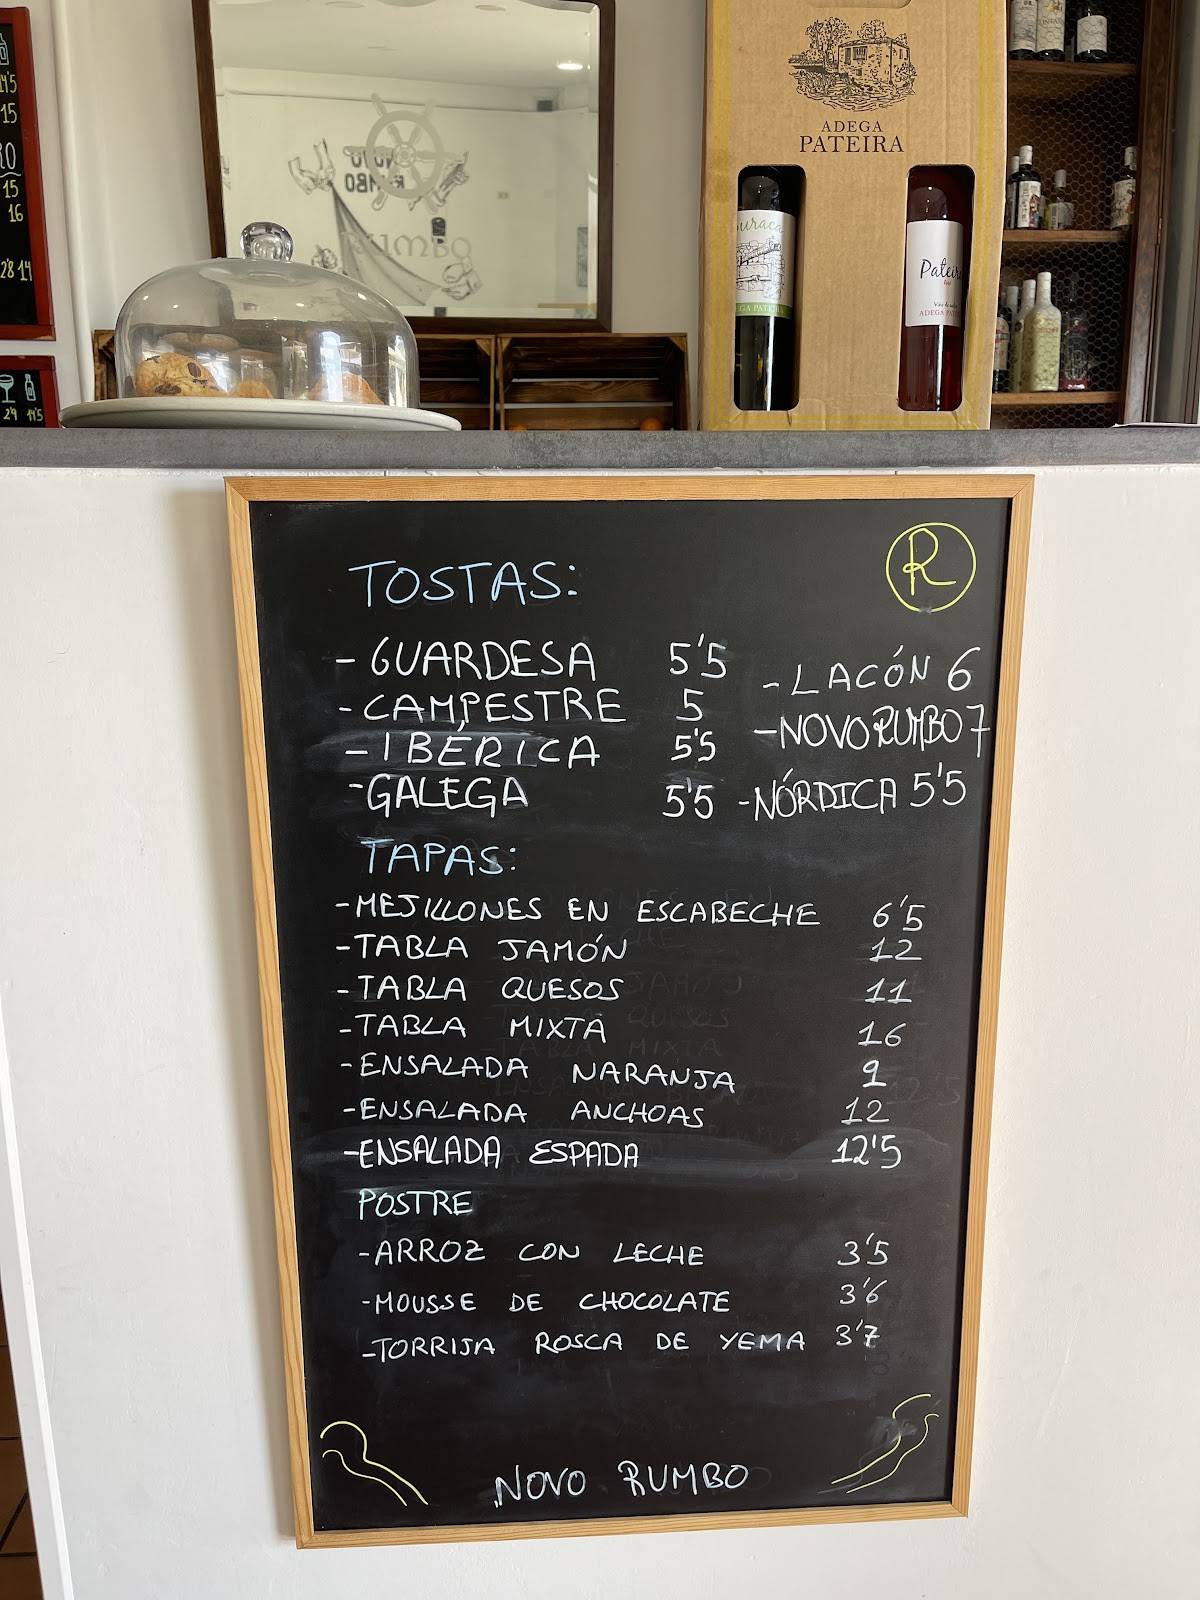 ADEGA
PATEIRA
RUMBO
ADEGA PATEIRA
14'5
15
15
16
2'8 14
2'9 14'5
R
TOSTAS:
- GUARDESA 5'5
- CAMPESTRE 5
- IBÉRICA 5'5
- GALEGA 5'5
- LACÓN 6
- NOVO RUMBO 7
- NÓRDICA 5'5
TAPAS:
- MEJILLONES EN ESCABECHE 6'5
- TABLA JAMÓN 12
- TABLA QUESOS 11
- TABLA MIXTA 16
- ENSALADA NARANJA 9
- ENSALADA ANCHOAS 12
- ENSALADA ESPADA 12'5
POSTRE
- ARROZ CON LECHE 3'5
- MOUSSE DE CHOCOLATE 3'6
- TORRIJA ROSCA DE YEMA 3'7
NOVO RUMBO